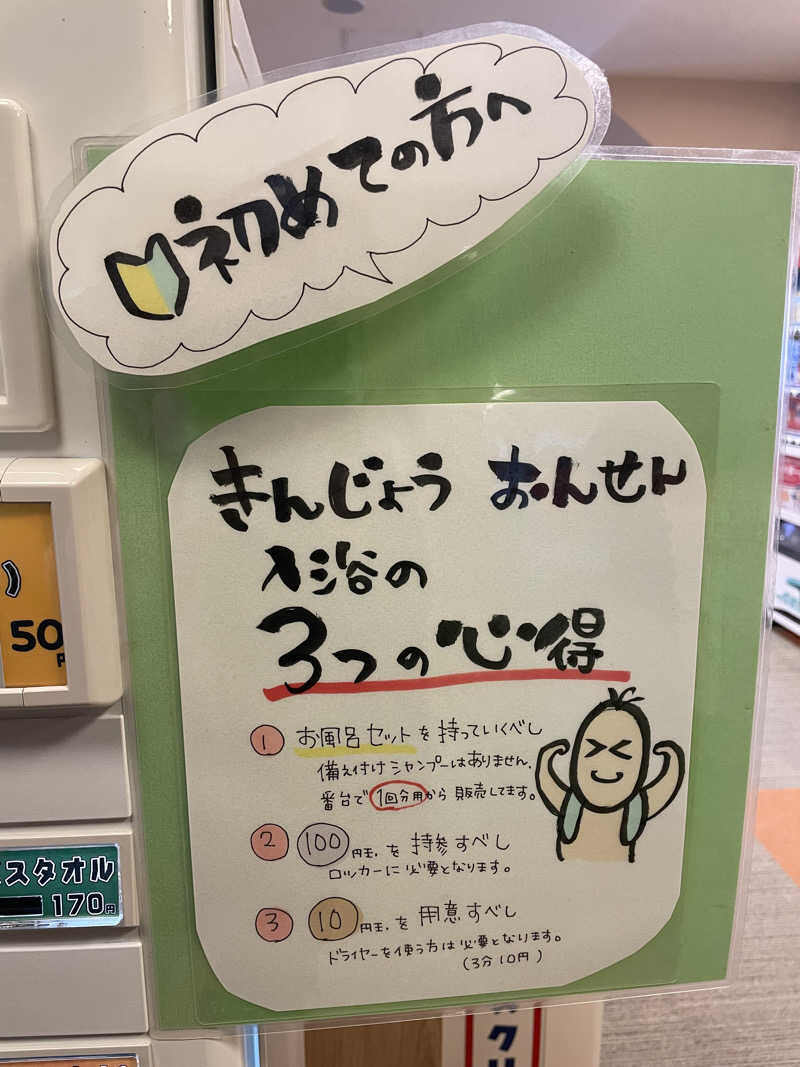 初めての方へ
きんじょう おんせん
入浴の
3つの心得
1 お風呂セットを持っていくべし
備え付けシャンプーはありません。
番台で1回分用から販売してます。
2 100円玉、を持参すべし
ロッカーに必要となります。
3 10円玉、を用意すべし
ドライヤーを使う方は必要となります。
(3分10円)
)
50
スタオル
170円
スクリ